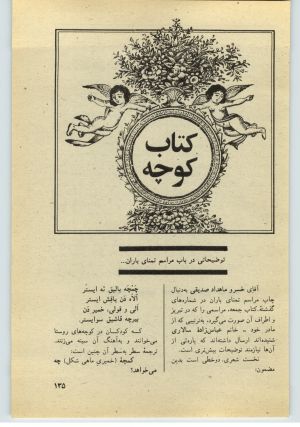 کتاب
کوچه
توضیحاتی در باب مراسم تمنای باران...
آقای خسرو ماهداد صدیقی به‌دنبال
چاپ مراسم تمنای باران در شماره‌های
گذشتهٔ کتاب جمعه، مراسمی را که در تبریز
و اطراف آن صورت می‌گیرد، به‌ترتیبی که از
مادر خود ـ خانم عباس‌زاد سالاری
شنیده‌اند ارسال داشته‌اند که پاره‌ئی از
آن‌ها نیازمند توضیحات بیش‌تری است.
نخست شعری، دوخطی است بدین
مضمون:
چمچه بالیق نه ایستر
آللاه دن یاغیش ایستر
الی و قولی، خمیر دن
بیرجه قاشیق سوایستر.
که کودکان در کوچه‌های روستا
می‌خوانند و به‌آهنگ آن سینه می‌زنند.
ترجمهٔ سطر به‌سطر آن چنین است:
کمچهٔ (خمیری ماهی شکل) چه
می‌خواهد؟
۱۳۵